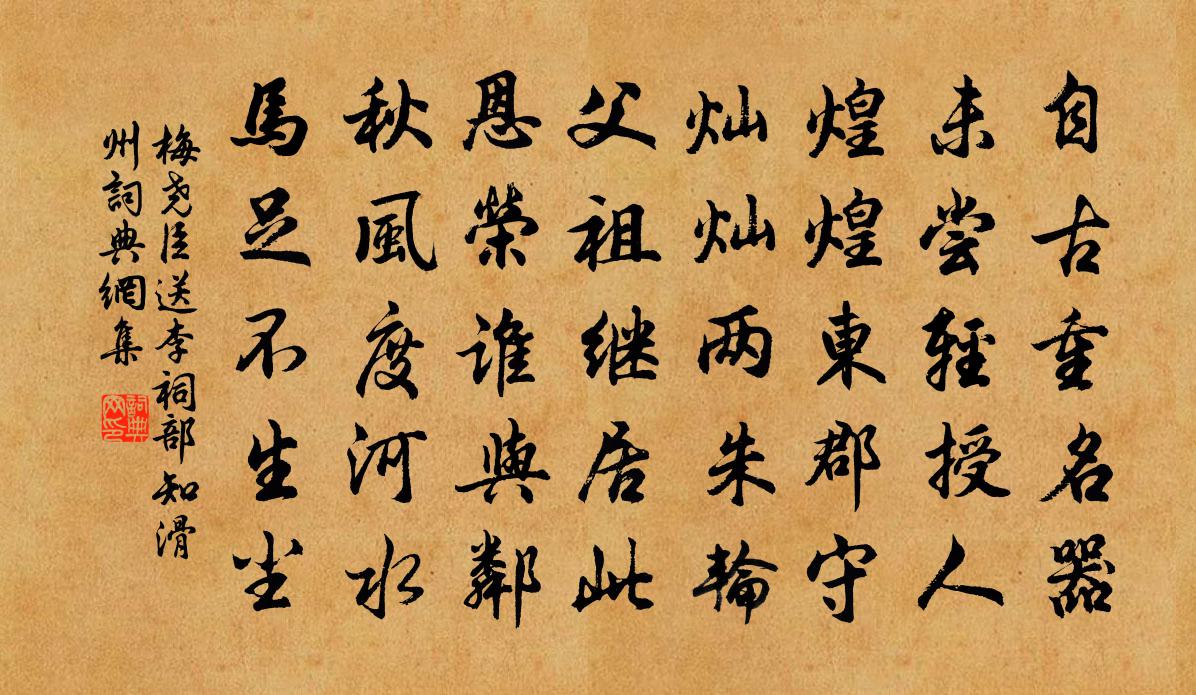 自古重名器
未尝輕授人
煌煌東郡守
灿灿两朱輪
父祖继居此
恩榮谁與鄰
秋風度河水
馬足不生尘
梅尧臣送李祠部知滑
州詞典網集
詞典
网印